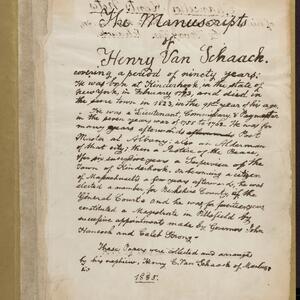 The Manuscripts
of
Henry Van Schaack.
covering a period of ninety years.
He was born at Kinderhook in the State of
New York, in February 1733, and died in
the same town in 1823, in the 91st year of his age.
He was a Lieutenant, Commissary & Paymaster
in the seven years war of 1755 to 1762. He was for
many years afterwards Post
Master at Albany; also an Alderman
of that city; then a Justice of the Peace,
for years a Supervisor of the
Town of Kinderhook. On becoming a citizen
of Massachusetts a few years afterwards, he was
elected a member for Berkshire County of the
General Court and he was for
constituted a Magistrate in Pittsfield by
successive appointments made by Governor John
Hancock and Caleb Strong.
These Papers were collected and arranged
by his nephew, Henry C. Van Schaack of Manlius
1885.